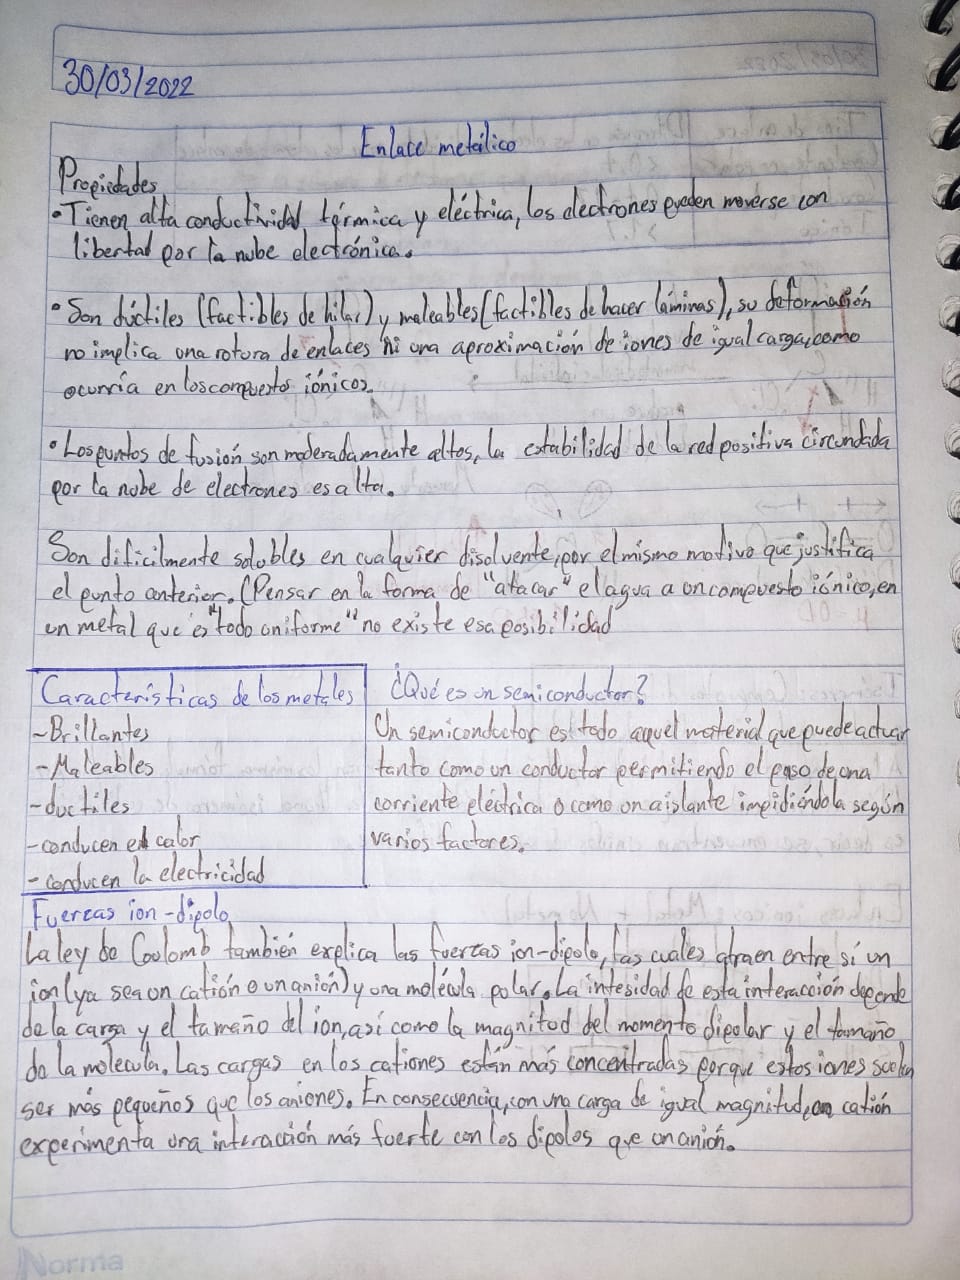 30/03/2022
Enlace metálico
Propiedades
•Tienen alta conductividad térmica y eléctrica, los electrones pueden moverse con
libertad por la nube electrónica.
•Son dúctiles (factibles de hilar) y maleables (factibles de hacer láminas), su deformación
no implica una rotura de enlaces ni una aproximación de iones de igual carga, como
ocurría en los compuestos iónicos.
•Los puntos de fusión son moderadamente altos, la estabilidad de la red positiva circundada
por la nube de electrones es alta.
Son dificilmente solubles en cualquier disolvente, por el mismo motivo que justifica
el punto anterior. (Pensar en la forma de "atacar" el agua a un compuesto iónico, en
un metal que es "todo uniforme" no existe esa posibilidad
Características de los metales
-Brillantes
-Maleables
-ductiles
-conducen el calor
-conducen la electricidad
¿Qué es un semiconductor?
Un semiconductor es todo aquel material que puede actuar
tanto como un conductor permitiendo el paso de una
corriente eléctrica o como un aislante impidiéndola según
varios factores.
Fuerzas ion-dipolo
La ley de Coulomb también explica las fuerzas ion-dipolo, las cuales atraen entre sí un
ion (ya sea un catión o un anión) y una molécula polar. La intesidad de esta interacción depende
de la carga y el tamaño del ion, así como la magnitud del momento dipolar y el tamaño
de la molécula. Las cargas en los cationes están más concentradas porque estos iones suelen
ser más pequeños que los aniones. En consecuencia, con una carga de igual magnitud, un catión
experimenta una interacción más fuerte con los dipolos que un anión.
Norma